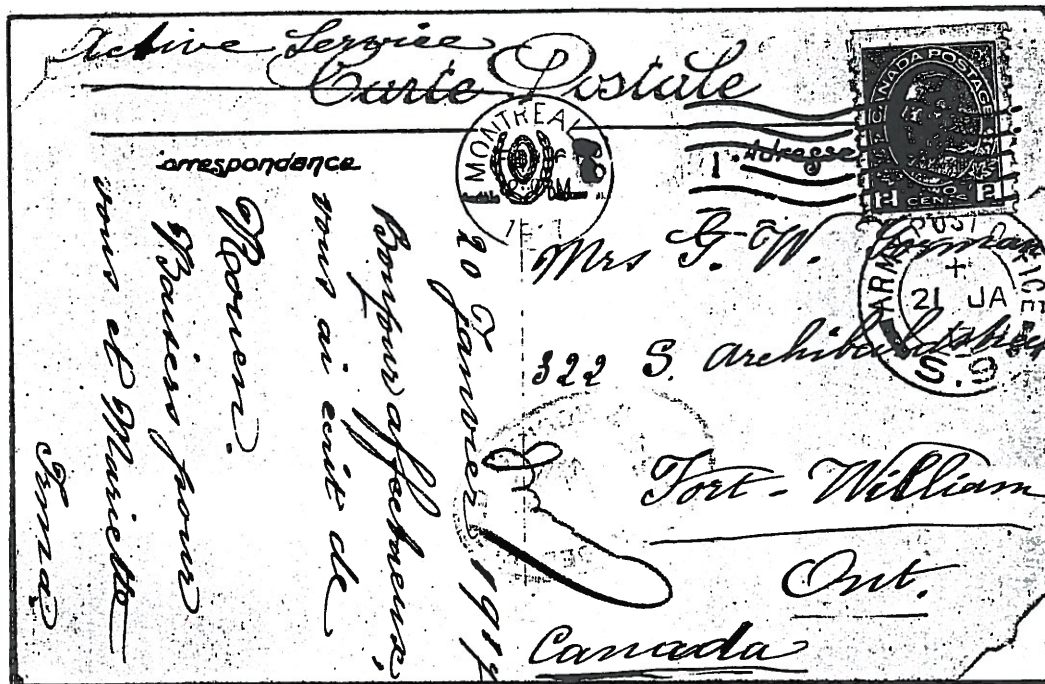 Active Service
Carte Postale
Correspondance
Adresse
MONTREAL
CANADA POSTAGE
2 CENTS 2
ARMY POST OFFICE
21 JA
S.9
20 Janvier 1917
Bonjour affectueux,
vous ai écrit de
Rouen.
Baisers pour
vous et Mariette
Mrs G. W.
322 S. Archibald
Fort-William
Ont.
Canada